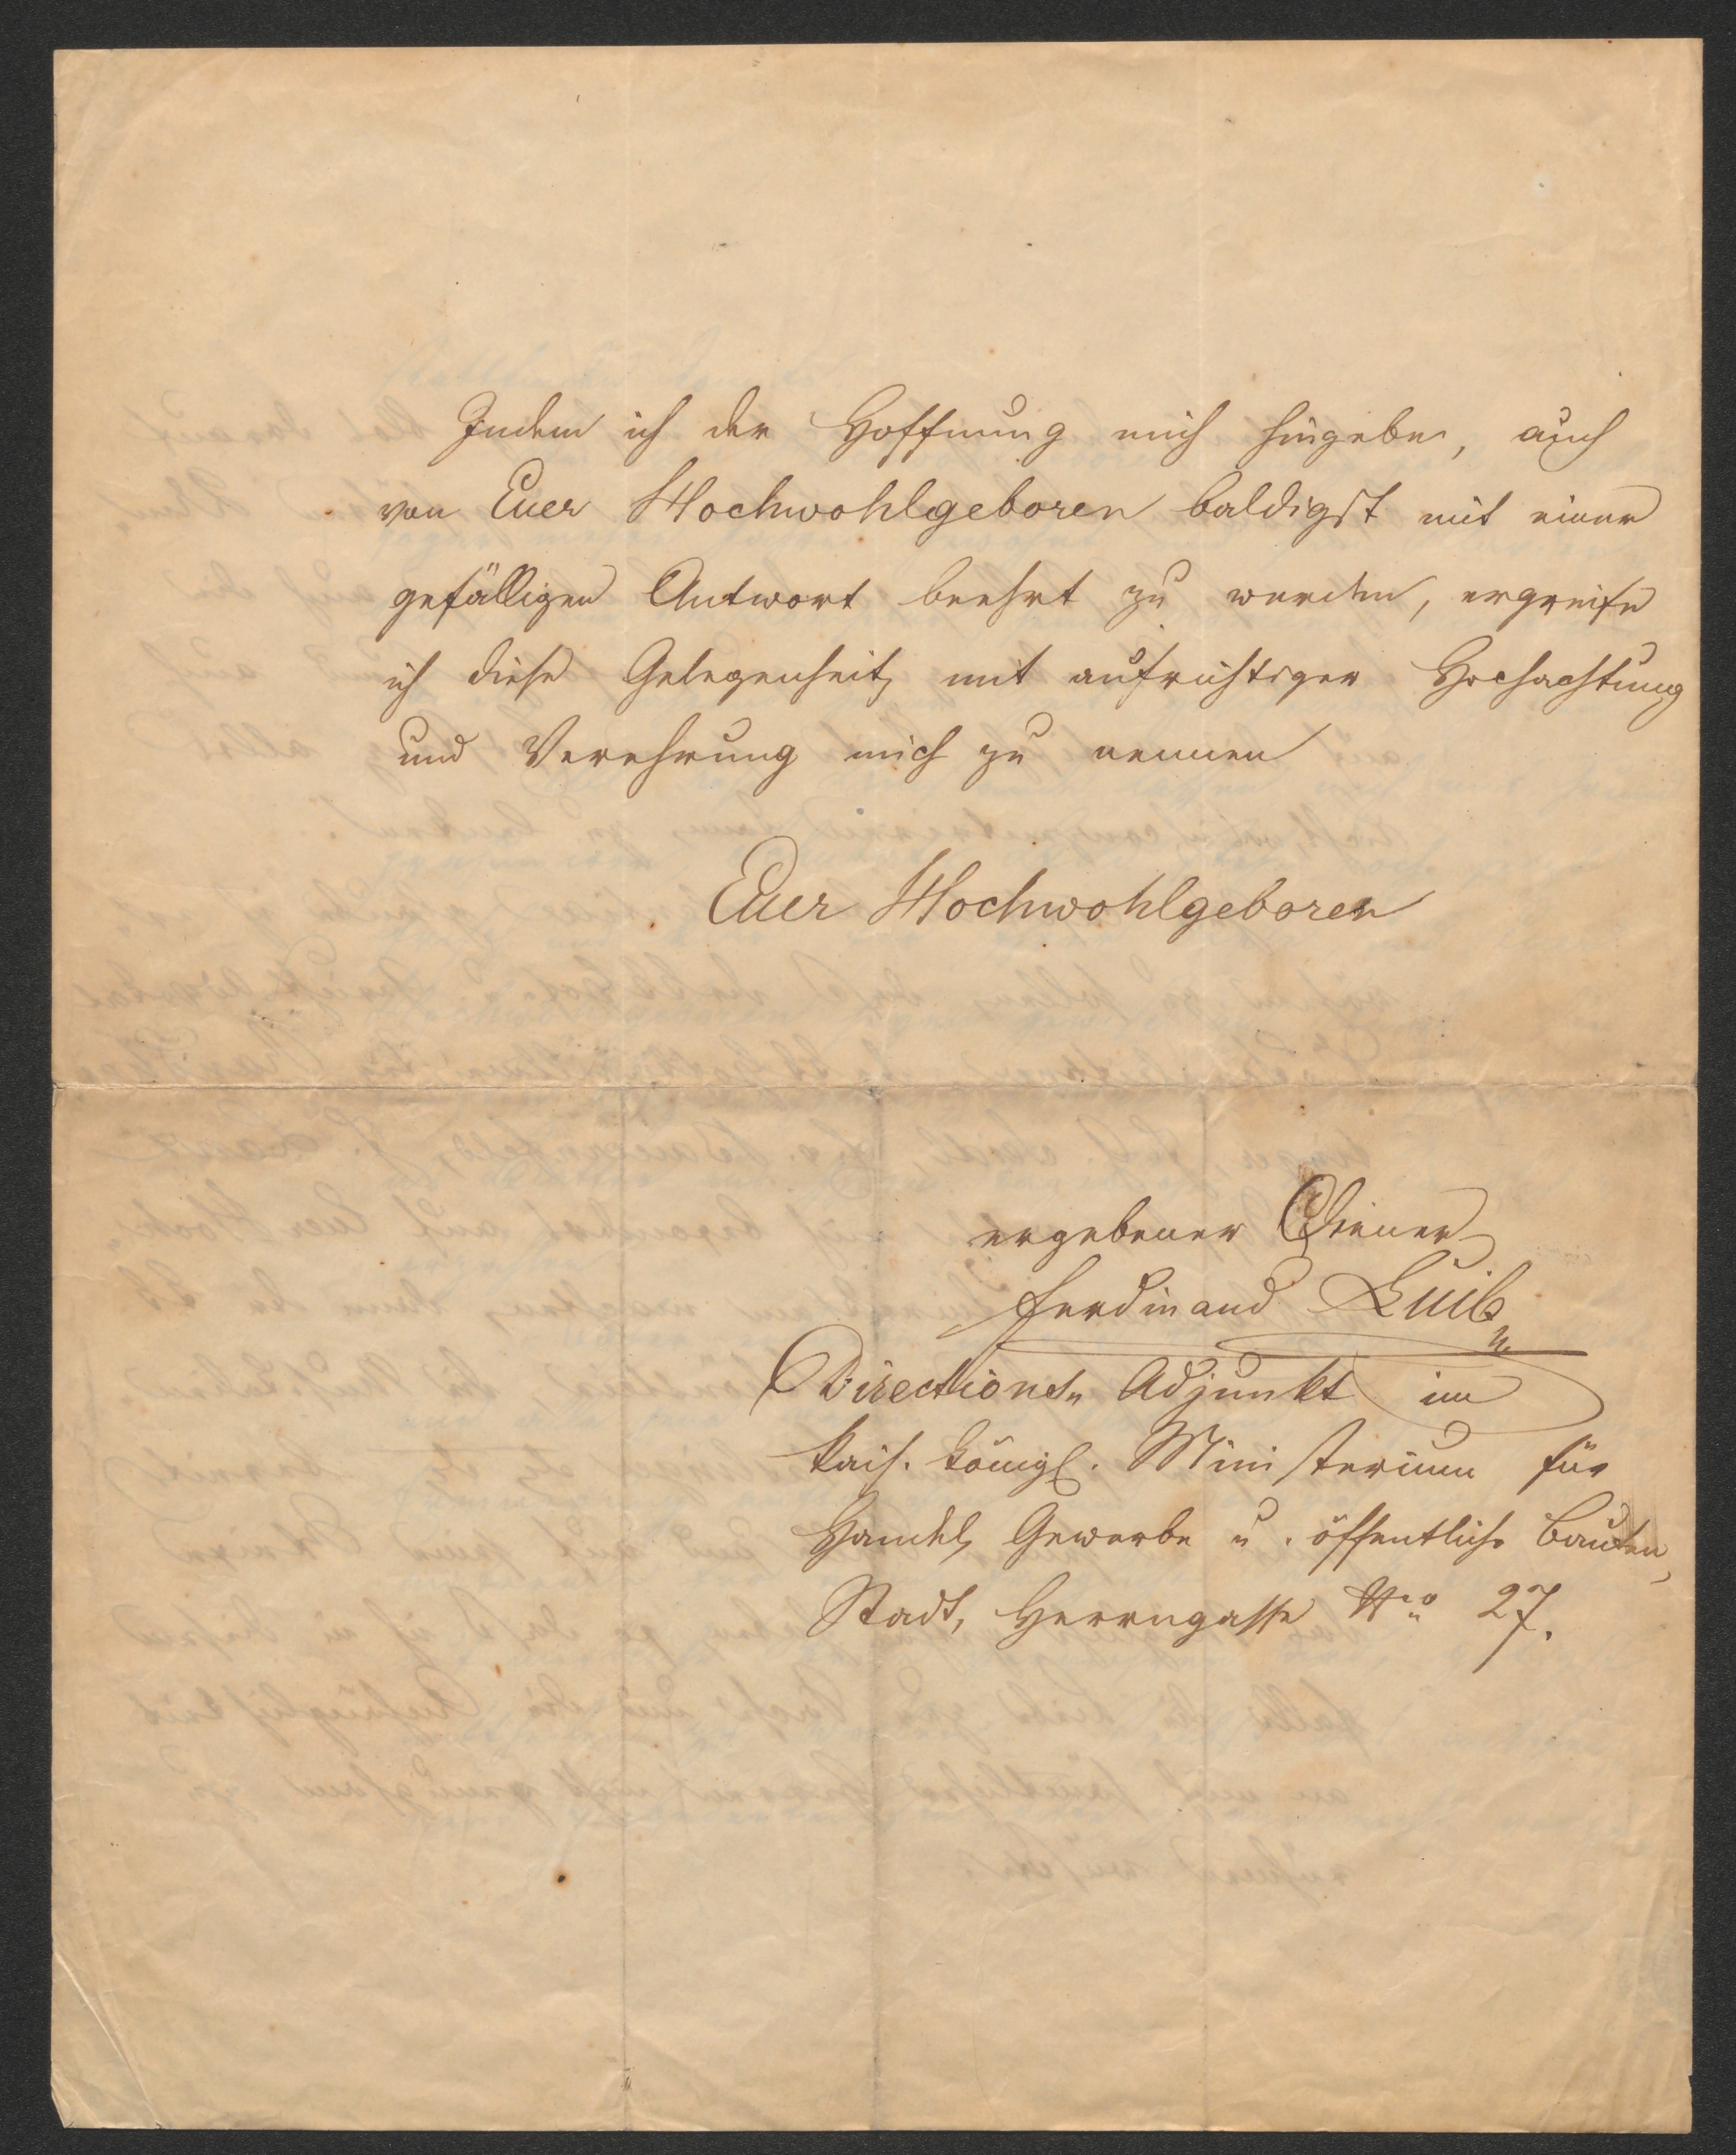 Indem ich der Hoffnung mich hingebe, auch
von Euer Hochwohlgeboren baldigst mit einer
gefälligen Antwort beehrt zu werden, ergreife
ich diese Gelegenheit, mit aufrichtiger Hochachtung
und Verehrung mich zu nennen
Euer Hochwohlgeboren
ergebener Diener
Ferdinand Luib
Directions-Adjunkt im
kais. königl. Ministerium für
Handel, Gewerbe u. öffentliche Bauten,
Stadt, Herrngasse Nro 27.